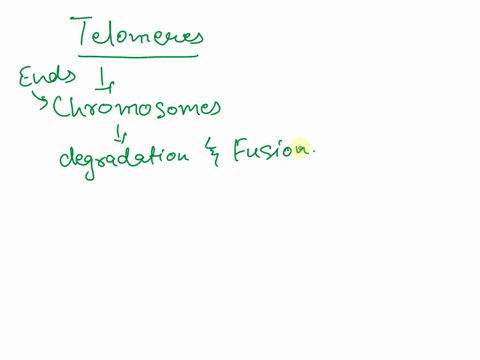 Telomeres
Ends
Chromosomes
degradation & Fusion.